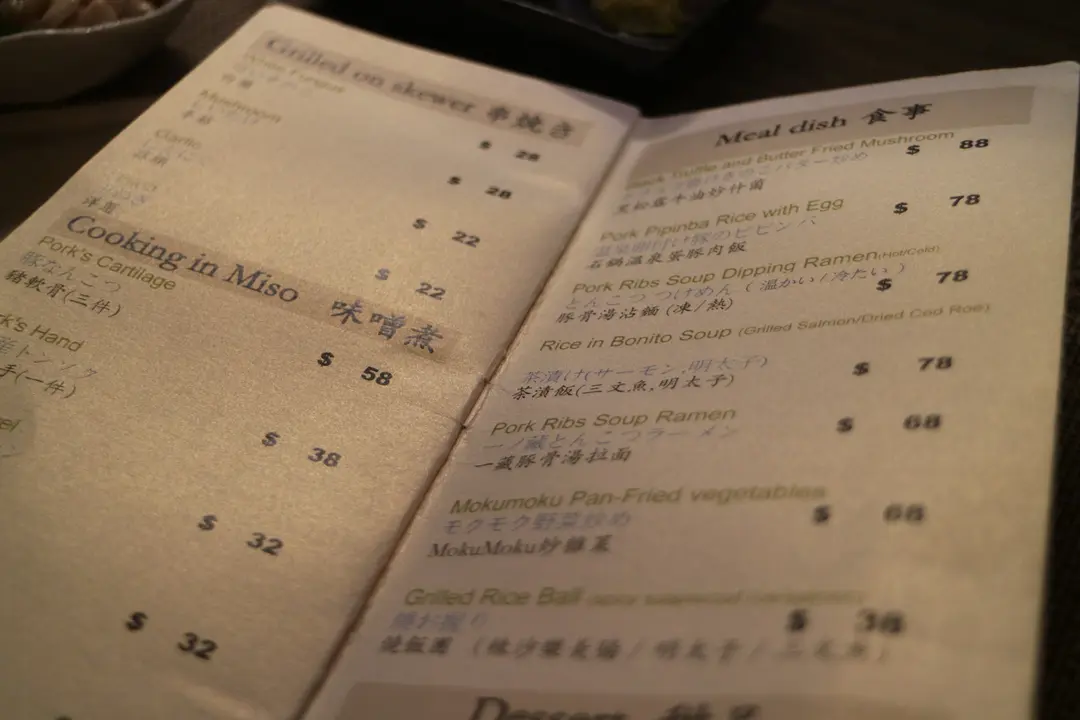 Grilled on skewer 串焼き
$ 28
Mushroom
$ 28
Garlic
$ 22
洋蔥
$ 22
Cooking in Miso 味噌煮
Pork's Cartilage
豚なんこつ
豬軟骨(三件)
$ 58
k's Hand
トンソク
手(一件)
$ 38
$ 32
$ 32
Meal dish 食事
Truffle and Butter Fried Mushroom
$ 88
黑松露牛油炒什菌
Pork Pipinba Rice with Egg
$ 78
石鍋溫泉蛋豚肉飯
Pork Ribs Soup Dipping Ramen(Hot/Cold)
とんこつ つけめん ( 温かい / 冷たい )
$ 78
豚骨湯沾麵 (凍/熱)
Rice in Bonito Soup (Grilled Salmon/Dried Cod Roe)
茶漬け(サーモン,明太子)
$ 78
茶漬飯(三文魚,明太子)
Pork Ribs Soup Ramen
$ 68
一ノ蔵とんこつラーメン
一藏豚骨湯拉面
Mokumoku Pan-Fried vegetables
$ 68
モクモク野菜炒め
MokuMoku炒雜菜
Grilled Rice Ball
$ 38
燒飯團
Dessert